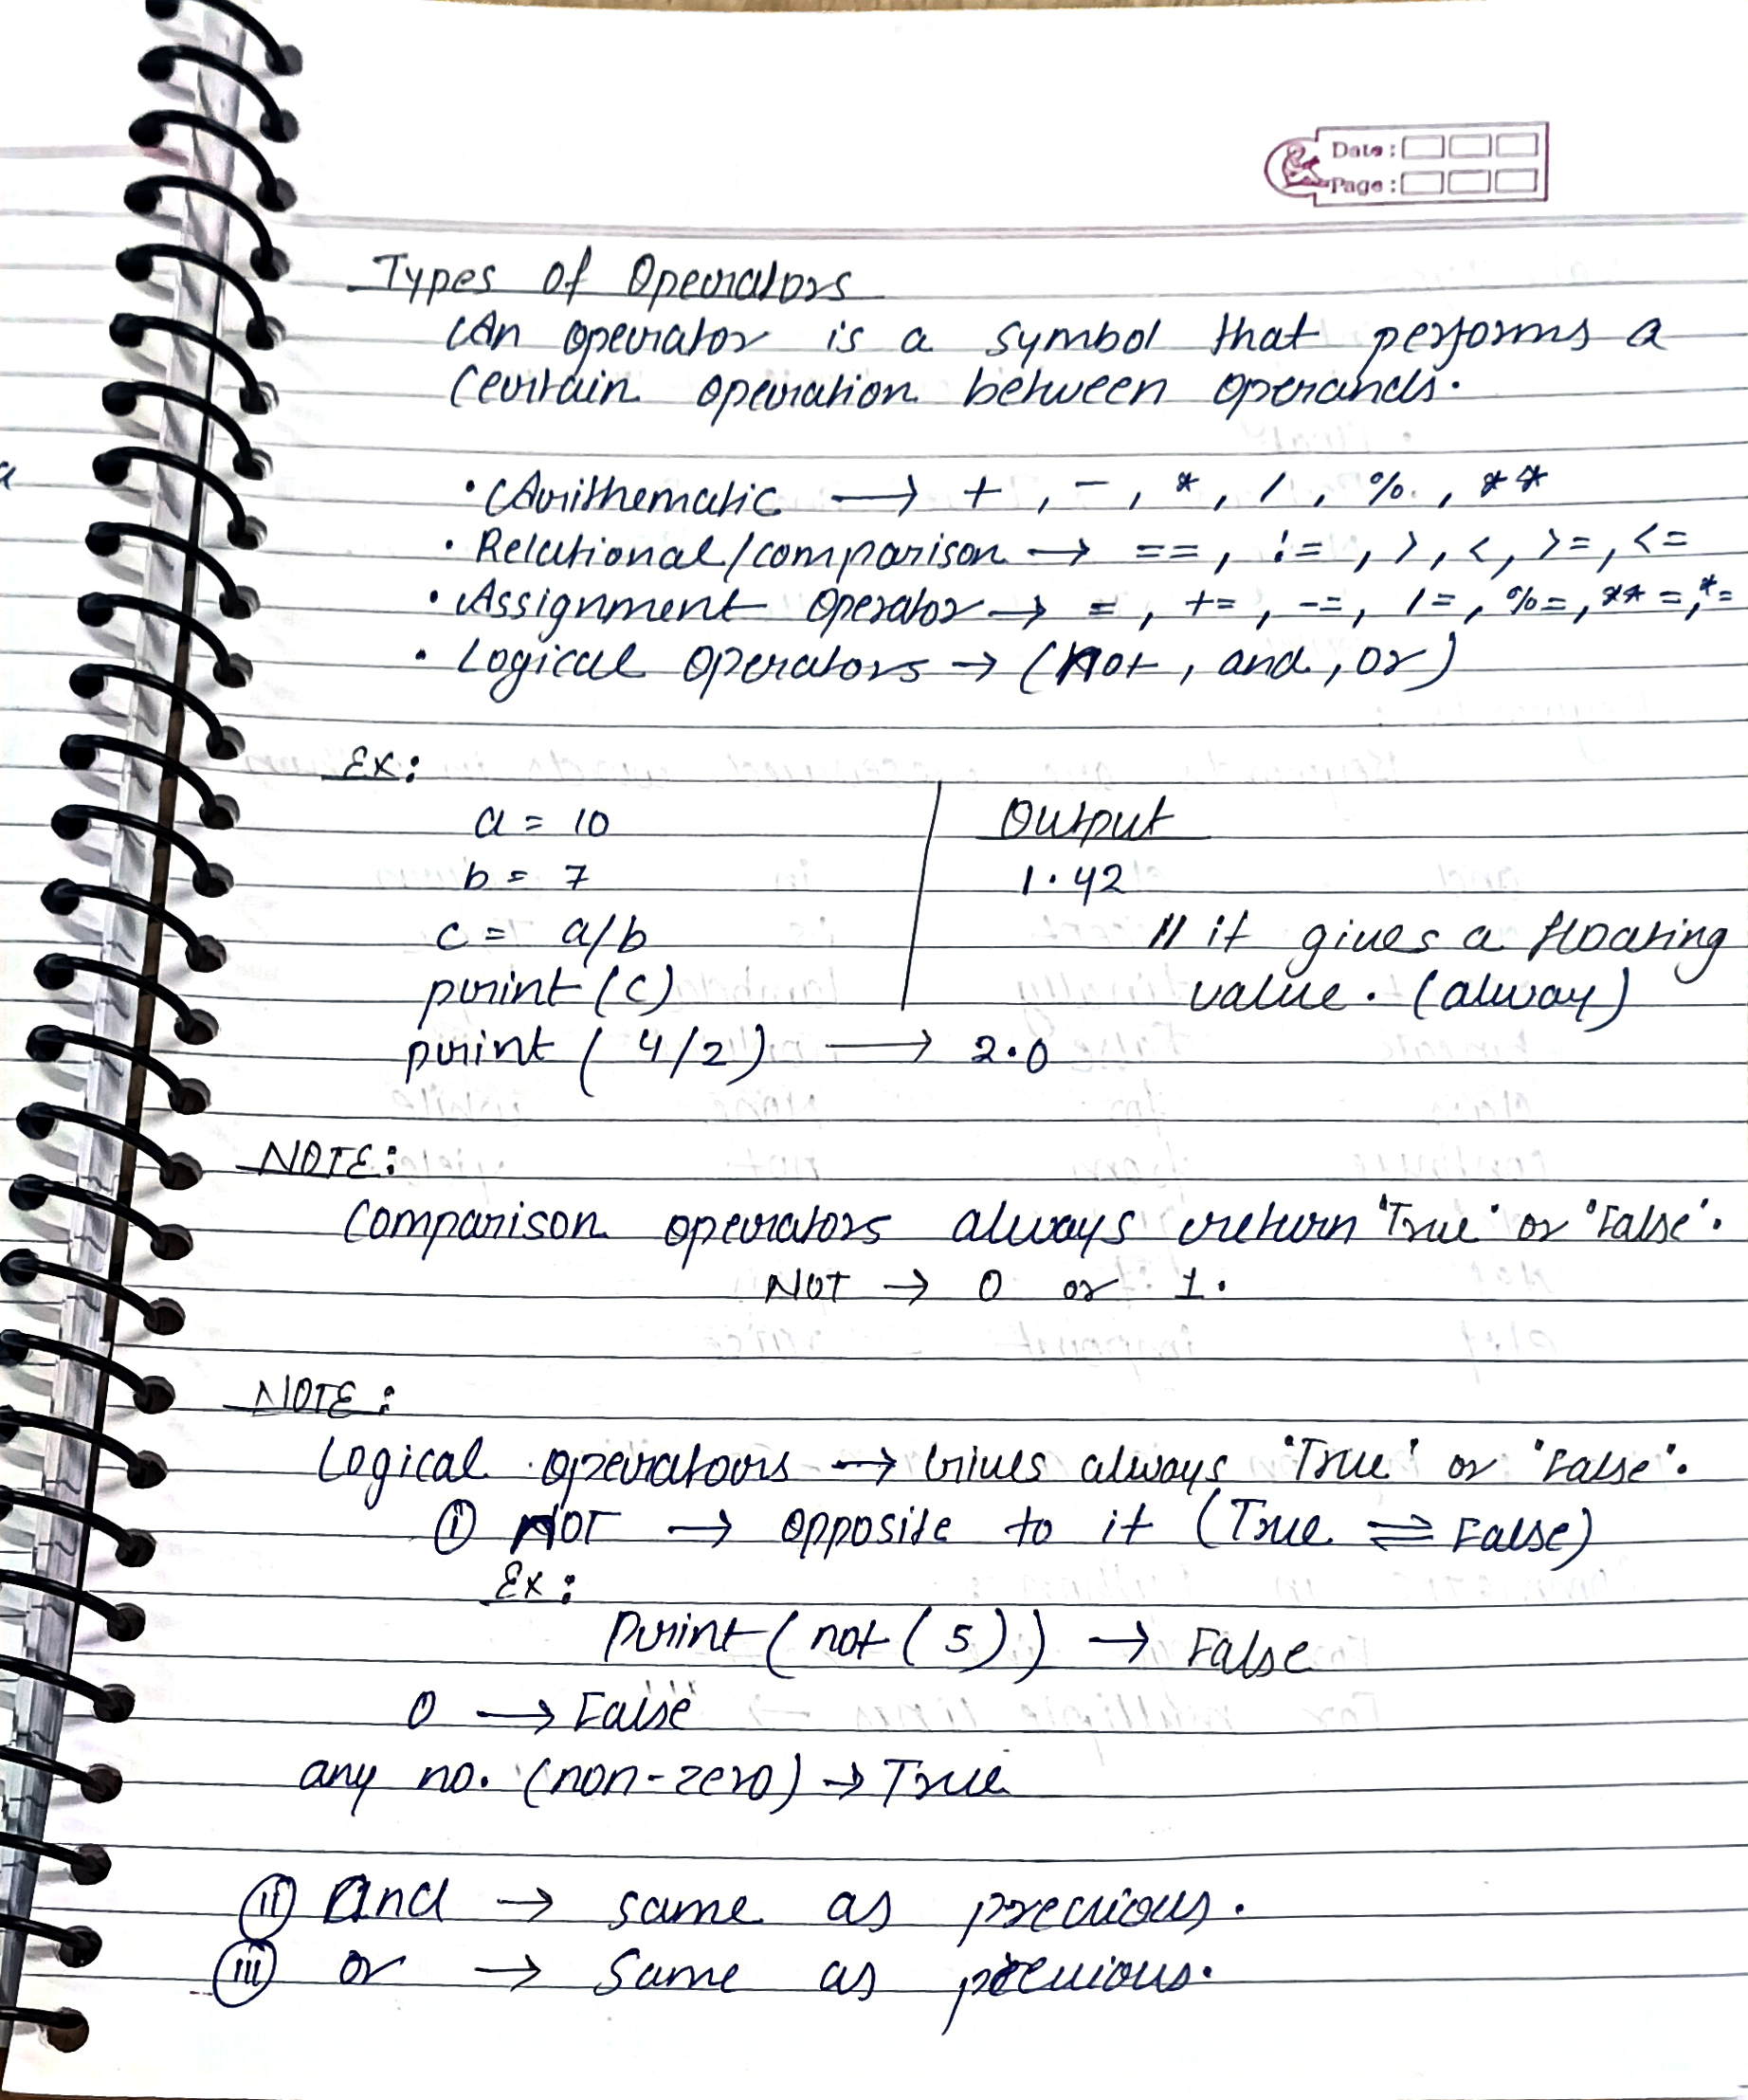 Date :
Page :
Types of Operators
An operator is a symbol that performs a
certain operation between operands.
• Arithematic → + , - , * , / , % , **
• Relational/comparison → == , != , > , < , >= , <=
• Assignment Operator → = , += , -= , /= , %= , **= , *=
• Logical operators → (not , and , or)
Ex:
a = 10
Output
b = 7
1.42
c = a/b
// it gives a floating
print (c)
value. (alway)
print ( 4/2 ) → 2.0
NOTE:
Comparison operators always return 'True' or 'False'.
NOT → 0 or 1.
NOTE:
Logical operatoors → Gives always 'True' or 'False'.
(i) NOT → opposite to it (True ⇌ False)
Ex:
Print ( not ( 5 ) ) → False
0 → False
any no. (non-zero) → True
(ii) And → same as previous.
(iii) or → Same as previous.